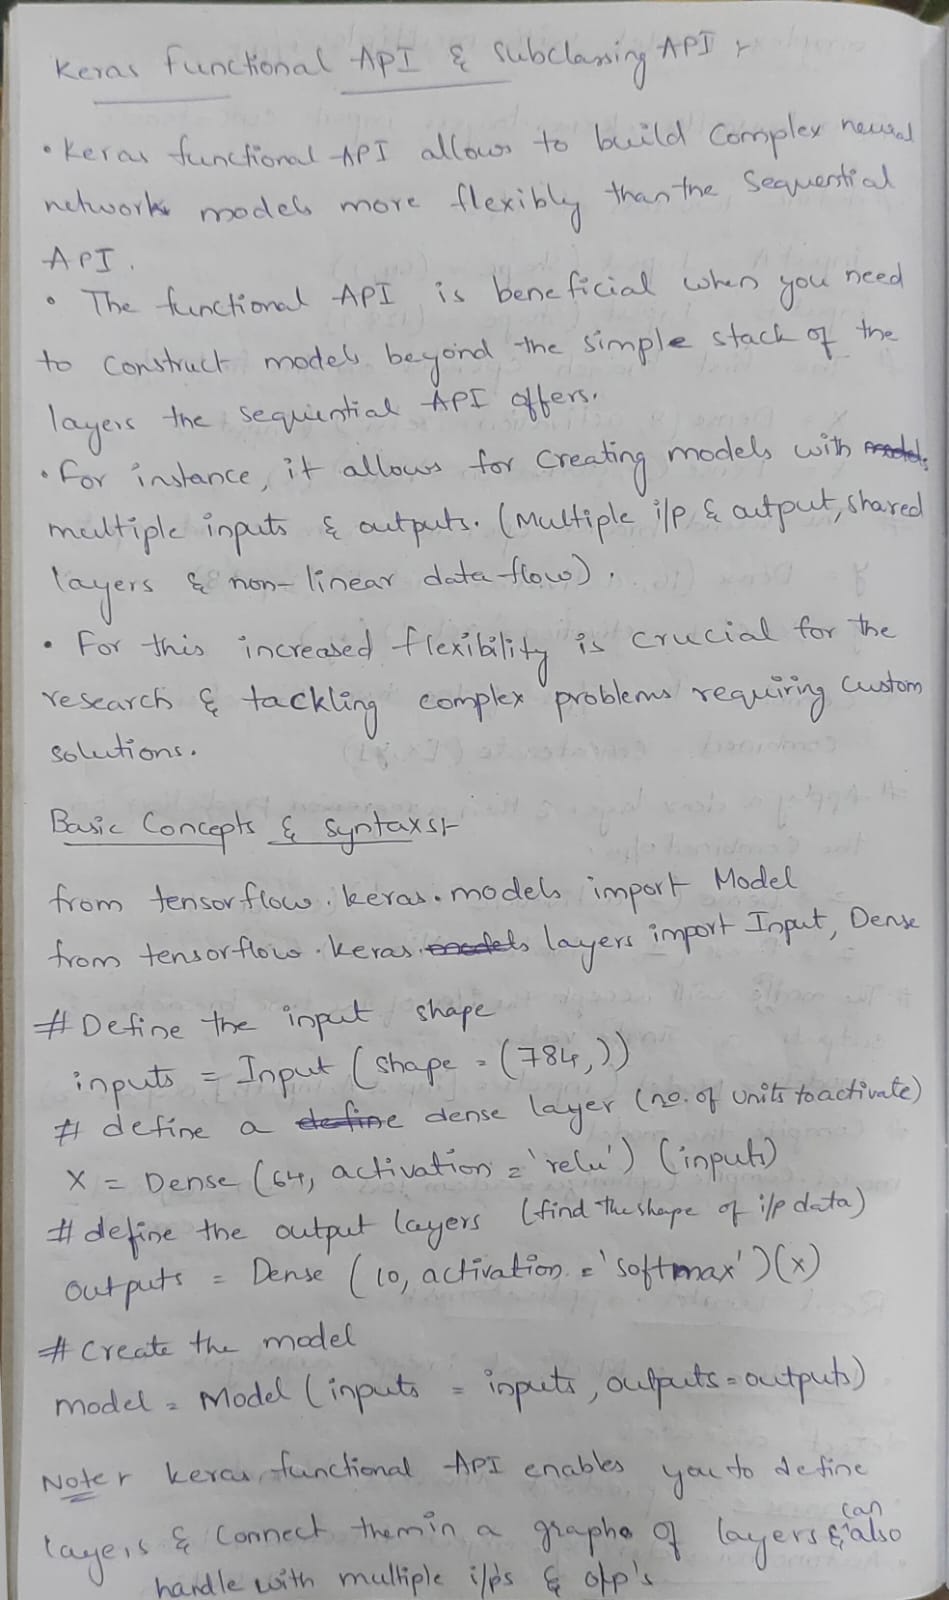 Keras functional API & Subclassing API :-
• Keras functional API allows to build Complex neural
network models more flexibly than the Sequential
API.
• The functional API is beneficial when you need
to construct models beyond the simple stack of the
layers the sequential API offers.
• For instance, it allows for creating models with models
multiple inputs & outputs. (Multiple i/p & output, shared
layers & non-linear data flow).
• For this increased flexibility is crucial for the
research & tackling complex problems requiring custom
solutions.
Basic Concepts & Syntaxs:-
from tensorflow.keras.models import Model
from tensorflow.keras.models layers import Input, Dense
# Define the input shape
inputs = Input (shape = (784,))
# define a define dense layer (no. of units to activate)
X = Dense (64, activation = 'relu') (inputs)
# define the output layers (find the shape of i/p data)
outputs = Dense (10, activation = 'softmax')(x)
# Create the model
model = Model (inputs = inputs, outputs = outputs)
Note:- keras functional API enables you to define
layers & Connect them in a graphs of layers & can also
handle with multiple i/p's & o/p's